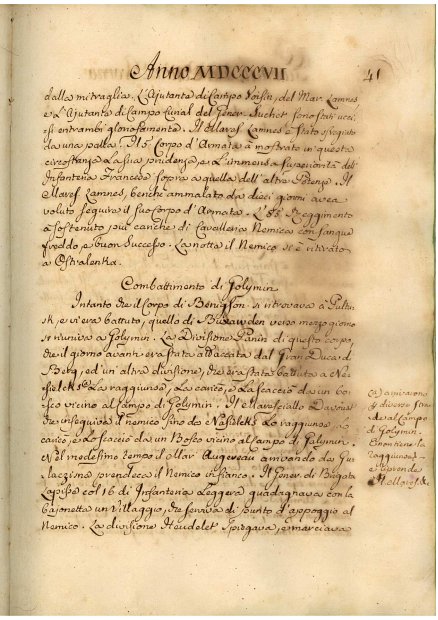 Anno MDCCCVII
41
dalla mitraglia. L'Ajutante di Campo Voisin, del Mar. Lannes
e L'Ajutante di Campo del Gener. Suchet sono stati ucci,
si entrambi gloriosamente. Il Maresc. Lannes è stato sfregiato
da una palla. Il 5 Corpo d'Armata à mostrato in questa
circostanza La sua prudenza, e L'immensa superiorità dell'
Infanteria Francese sopra a quella dell'altre Potenze. Il
Maresc. Lannes, benche ammalato da dieci giorni avea
voluto seguire il suo corpo d'Armata. L'85 Reggimento
à sostenuto più cariche di Cavalleria Nemica con sangue
freddo, e buon successo. La notte il Nemico si è ritirato
a Ostralenka.
Combattimento di Golymin
Intanto che il corpo di Benigson si ritrovava à Pultu,
sk, e vi era battuto, quello di Buxawden verso mezzo giorno
si riuniva a Golymin. La Divisione Panin di questo corpo,
che il giorno avanti era stata attaccata dal Gran Duca di
Berg, ed un'altra divisione, che era stata battuta a Na,
sielsk. La raggiunse, La caricò, e La scacciò da un bo,
sco vicino al campo di Golymin. Il Maresciallo Davoust
che inseguiva il nemico sino da Nasielsk Lo raggiunse Lo
caricò, e Lo scacciò da un Bosco vicino al campo di Golymin.
Nel medesimo tempo il Mar. Augereau arrivando da
Laczima prendeva il Nemico in fianco. Il Gener. di Brigata
Lapisse col 16 di Infanteria Leggera guadagnava con la
bajonetta un Villaggio, che serviva di punto d'appoggio al
Nemico. La divisione Heudelet spiegava, e marciava
arrivarono
diverse stra,
de al Campo
di Golymin
raggiunse
e riprende